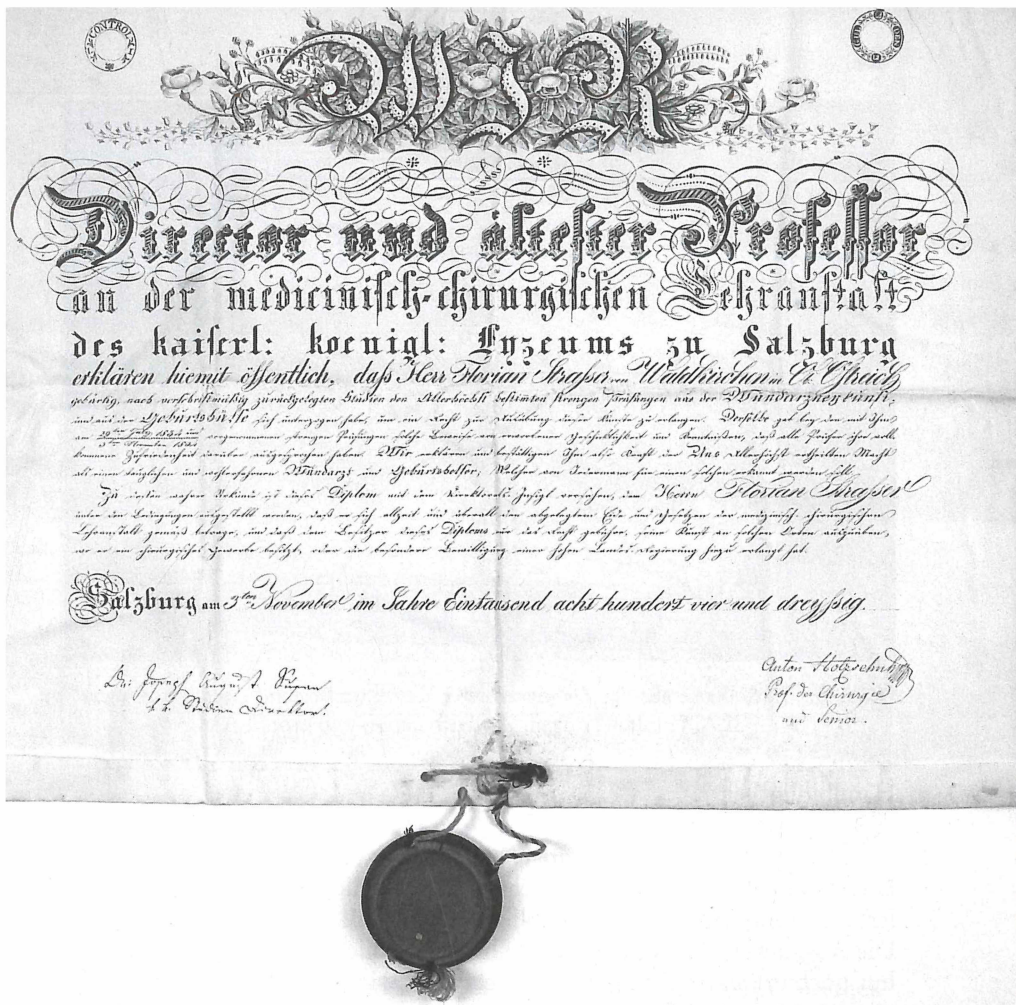 CONTROLL
WIR
Director und ältester Professor
an der medicinisch-chirurgischen Lehranstalt
des kaiserl: koenigl: Lyzeums zu Salzburg
erklären hiemit öffentlich, daß Herr Florian Strasser von Waldkirchen in Ob. Östreich
gebürtig, nach vorschriftmäßig zurückgelegten Studien den Allerhöchst bestimten strengen Prüfungen aus der Wundarzneykunst,
und aus der Geburtshülfe sich unterzogen habe, um ein Recht zur Ausübung dieser Künste zu erlangen. Derselbe hat bey den mit Ihm
am 3ten November 1834 vorgenommenen strengen Prüfungen solche Beweise von erworbener Geschicklichkeit und Kenntnißen, daß alle Prüfer ihre voll-
kommene Zufriedenheit darüber ausgesprochen haben. Wir erklären und bestättigen Ihn also Kraft der Uns Allerhöchst ertheilten Macht
als einen tauglichen und wohlerfahrnen Wundarzt und Geburtshelfer, Welcher von Jedermann für einen solchen erkannt werden soll.
Zu dessen wahrer Urkunde ist dieses Diplom mit dem Direktorats-Insigl versehen, dem Herrn Florian Strasser
unter den Bedingungen ausgestellt worden, daß er sich allzeit und überall den abgelegtem Eide und Gesetzen der medizinisch chirurgischen
Lehranstalt gemäß betrage, und daß dem Besitzer dieses Diploms nur das Recht gebühre, seine Kunst an solchen Orten auszuüben,
wo er ein chirurgisches Gewerbe besitzt, oder die besondere Bewilligung einer hohen Landes Regierung hiezu erlangt hat.
Salzburg am 3ten November im Jahre Eintausend acht hundert vier und dreyßig.
Dr. Joseph August
k. k. Studien Direktor.
Anton
Prof. der Chirurgie
und Senior.